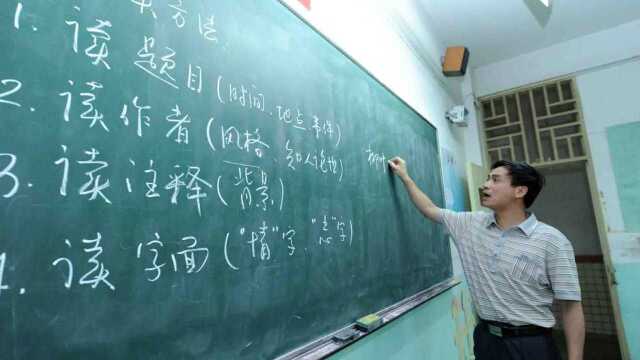 大方法
1. 读题目(时间.地点.事件)
2. 读作者(风格.知人论世)
3. 读注释(背景)
4. 读字面("情"字、"志"字)